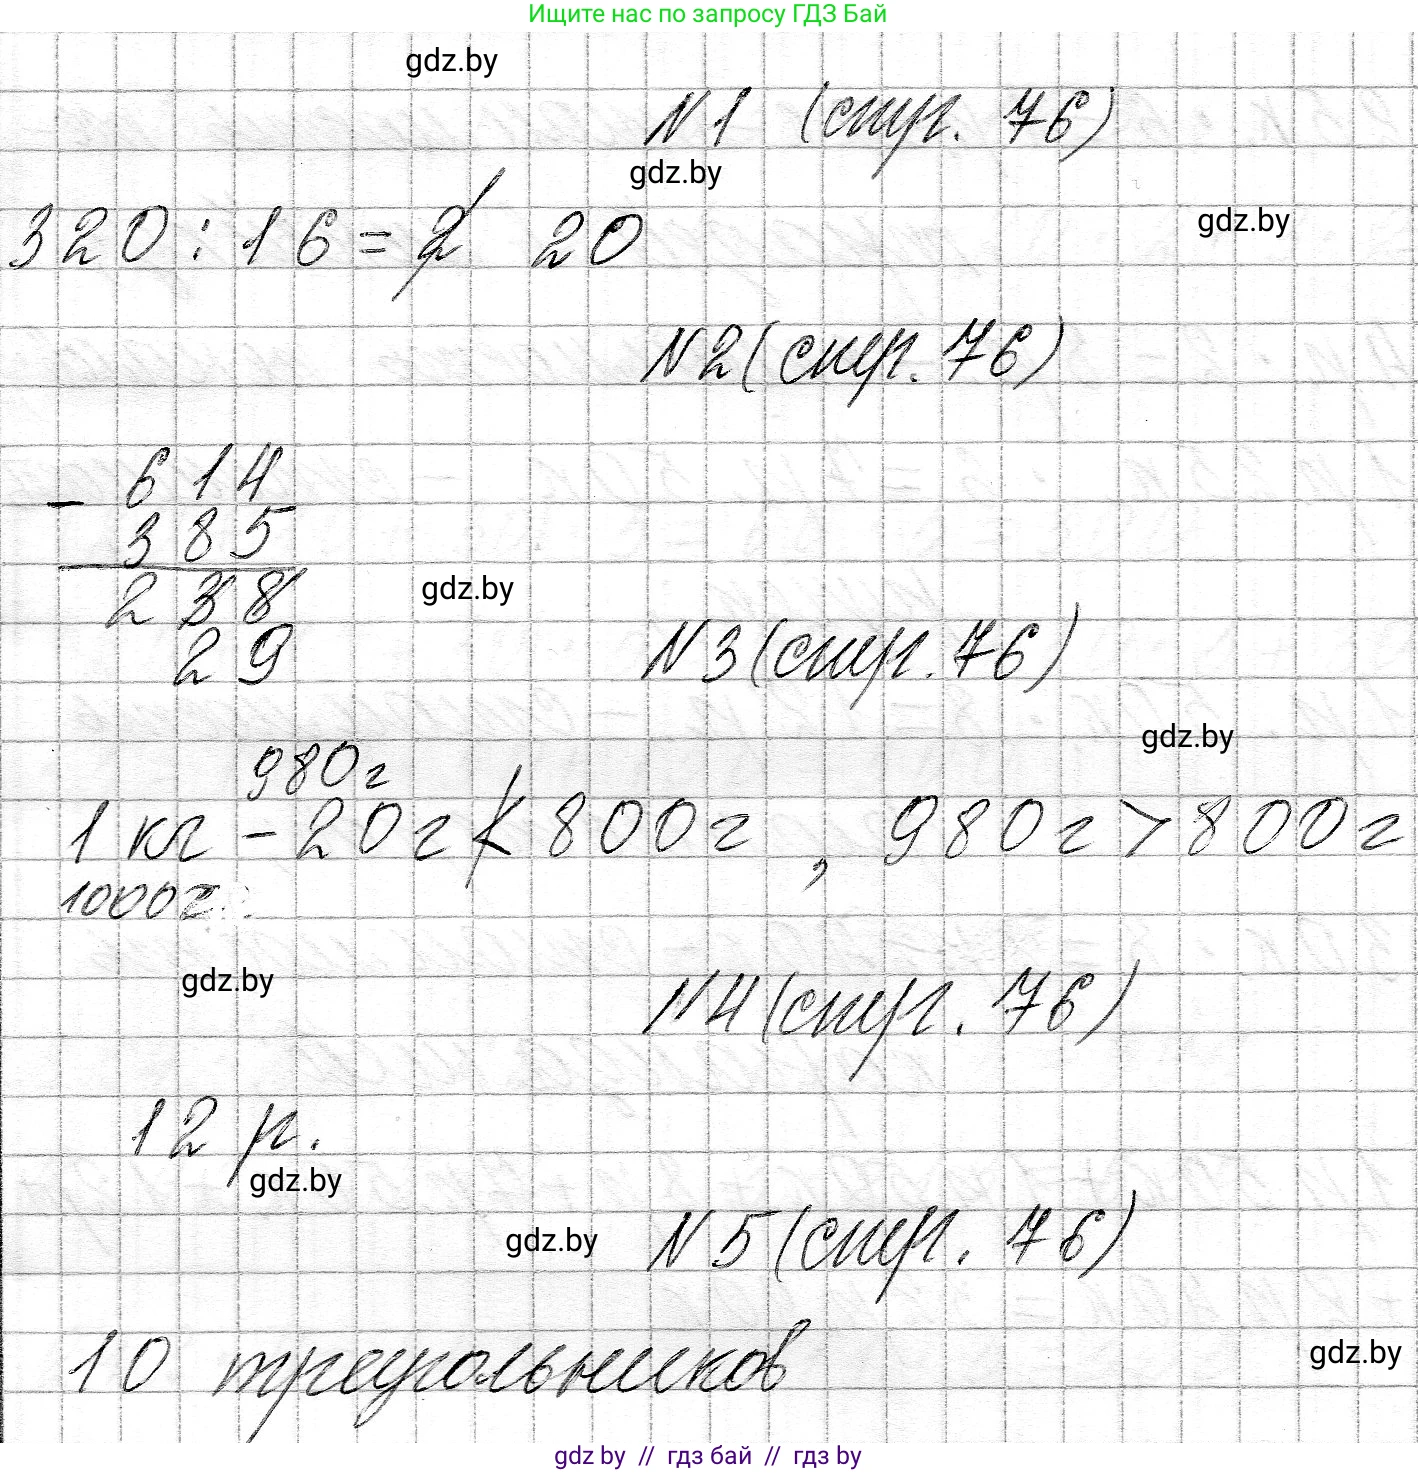 Ищите нас по запросу ГДЗ Бай
gdz.by
N1 (стр. 76)
gdz.by
gdz.by
320 : 16 = 2 20
N2 (стр. 76)
- 614
385
238
gdz.by
29
N3 (стр. 76)
gdz.by
980г
1 кг - 20г < 800г , 980г > 800г
1000г
gdz.by
N4 (стр. 76)
12 р.
gdz.by
gdz.by
N5 (стр. 76)
10 треугольников
gdz.by
gdz.by // гдз бай // гдз by